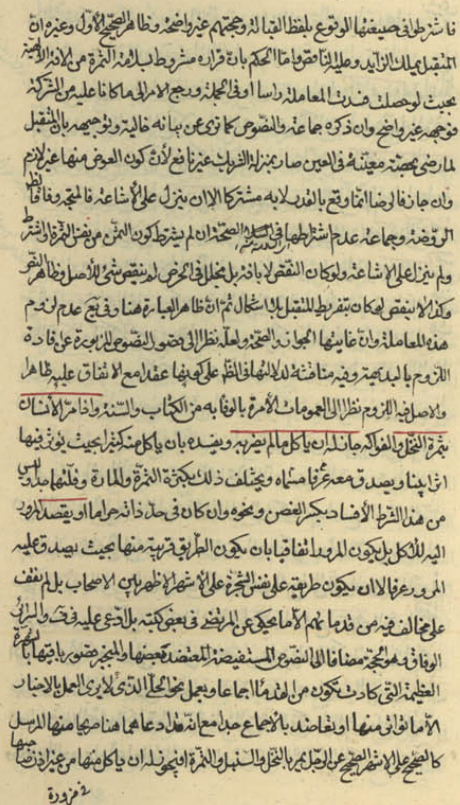 فاشترطوا في صيغتها الوقوع بلفظ القبالة وحجتهم غير واضحة وظاهر الصحيح الأول وغيره ان
المتقبل يملك الزايد وعليه الناقص واما الحكم بان قراره مشروط بسلامة الثمرة من الافة الالهية
بحيث لو حصلت فسدت المعاملة راسا او في الجملة ورجع الامر الى ما كانا عليه من الشركة
فوجهه غير واضح وان ذكره جماعة والنصوص كما ترى عن بيانه خالية وتوجيهه بان المتقبل
لما رضي بحصة معينة في العين صار بمنزلة الشريك غير نافع لان كون العوض منها غير لازم
وان جاز فالرضا انما وقع بالقدر لا به مشتركا الا ان ينزل على الاشاعة فالمتجه وفاقا لظ
الروضة وجماعة عدم اشتراطها في الصحة ان لم يشترط كون الثمن من نفس الثمرة والشرط
ولم ينزل على الاشاعة ولو كان النقص لا بافة بل بخلل في الخرص لم ينقص شئ للاصل وظاهر النص
وكذا لا ينقص لو كان بتفريط المتقبل بلا اشكال ثم ان ظاهر العبارة هنا وفي يع عدم لزوم
هذه المعاملة وان غايتها الجواز والصحة ولعله نظرا الى قصور النصوص المزبورة عن افادة
اللزوم بالبديهة وفيه مناقشة لدلالتها في الظ على كونها عقدا مع الاتفاق عليه ظاهرا
والاصل فيه اللزوم نظرا الى العمومات الامرة بالوفا به من الكتاب والسنة واذا مر الانسان
بثمرة النخل والفواكه جاز له ان ياكل ما لم يضر به ويفسده بان ياكل منه كثيرا بحيث يؤثر فيها
اثرا بينا ويصدق معه عرفا مسماه ويختلف ذلك بكثرة الثمرة والمارة وقلتهما وليس
من هذا الشرط الافساد بكسر الغصن ونحوه وان كان في حد ذاته حراما او يقصد المرور
اليه للاكل بل يكون المرور اتفاقيا بان يكون الطريق قريبة منها بحيث يصدق عليه
المرور عرفا لا ان يكون طريقه على نفس الشجرة على الاشهر الاظهر بين الاصحاب بل لم نقف
على مخالف فيه من قدمائهم الا ما يحكى عن المرتضى في بعض كتبه بل ادعى عليه في ف والسرائر
الوفاق وهو الحجة مضافا الى النصوص المستفيضة المعتضد بعضها والمنجبر قصور باقيها بالشهرة
العظيمة التي كادت تكون من القدماء اجماعا وبعمل نحو الحلي الذي لا يرى العمل بالاخبار
الا ما تواتر منها او تعاضد بالاجماع جدا مع انه قد ادعاهما هنا صريحا منها المرسل
كالصحيح على الاشهر الصحيح عن الرجل يمر بالنخل والسنبل والثمرة افيجوز له ان ياكل منها من غير اذن صاحبها
من ضرورة